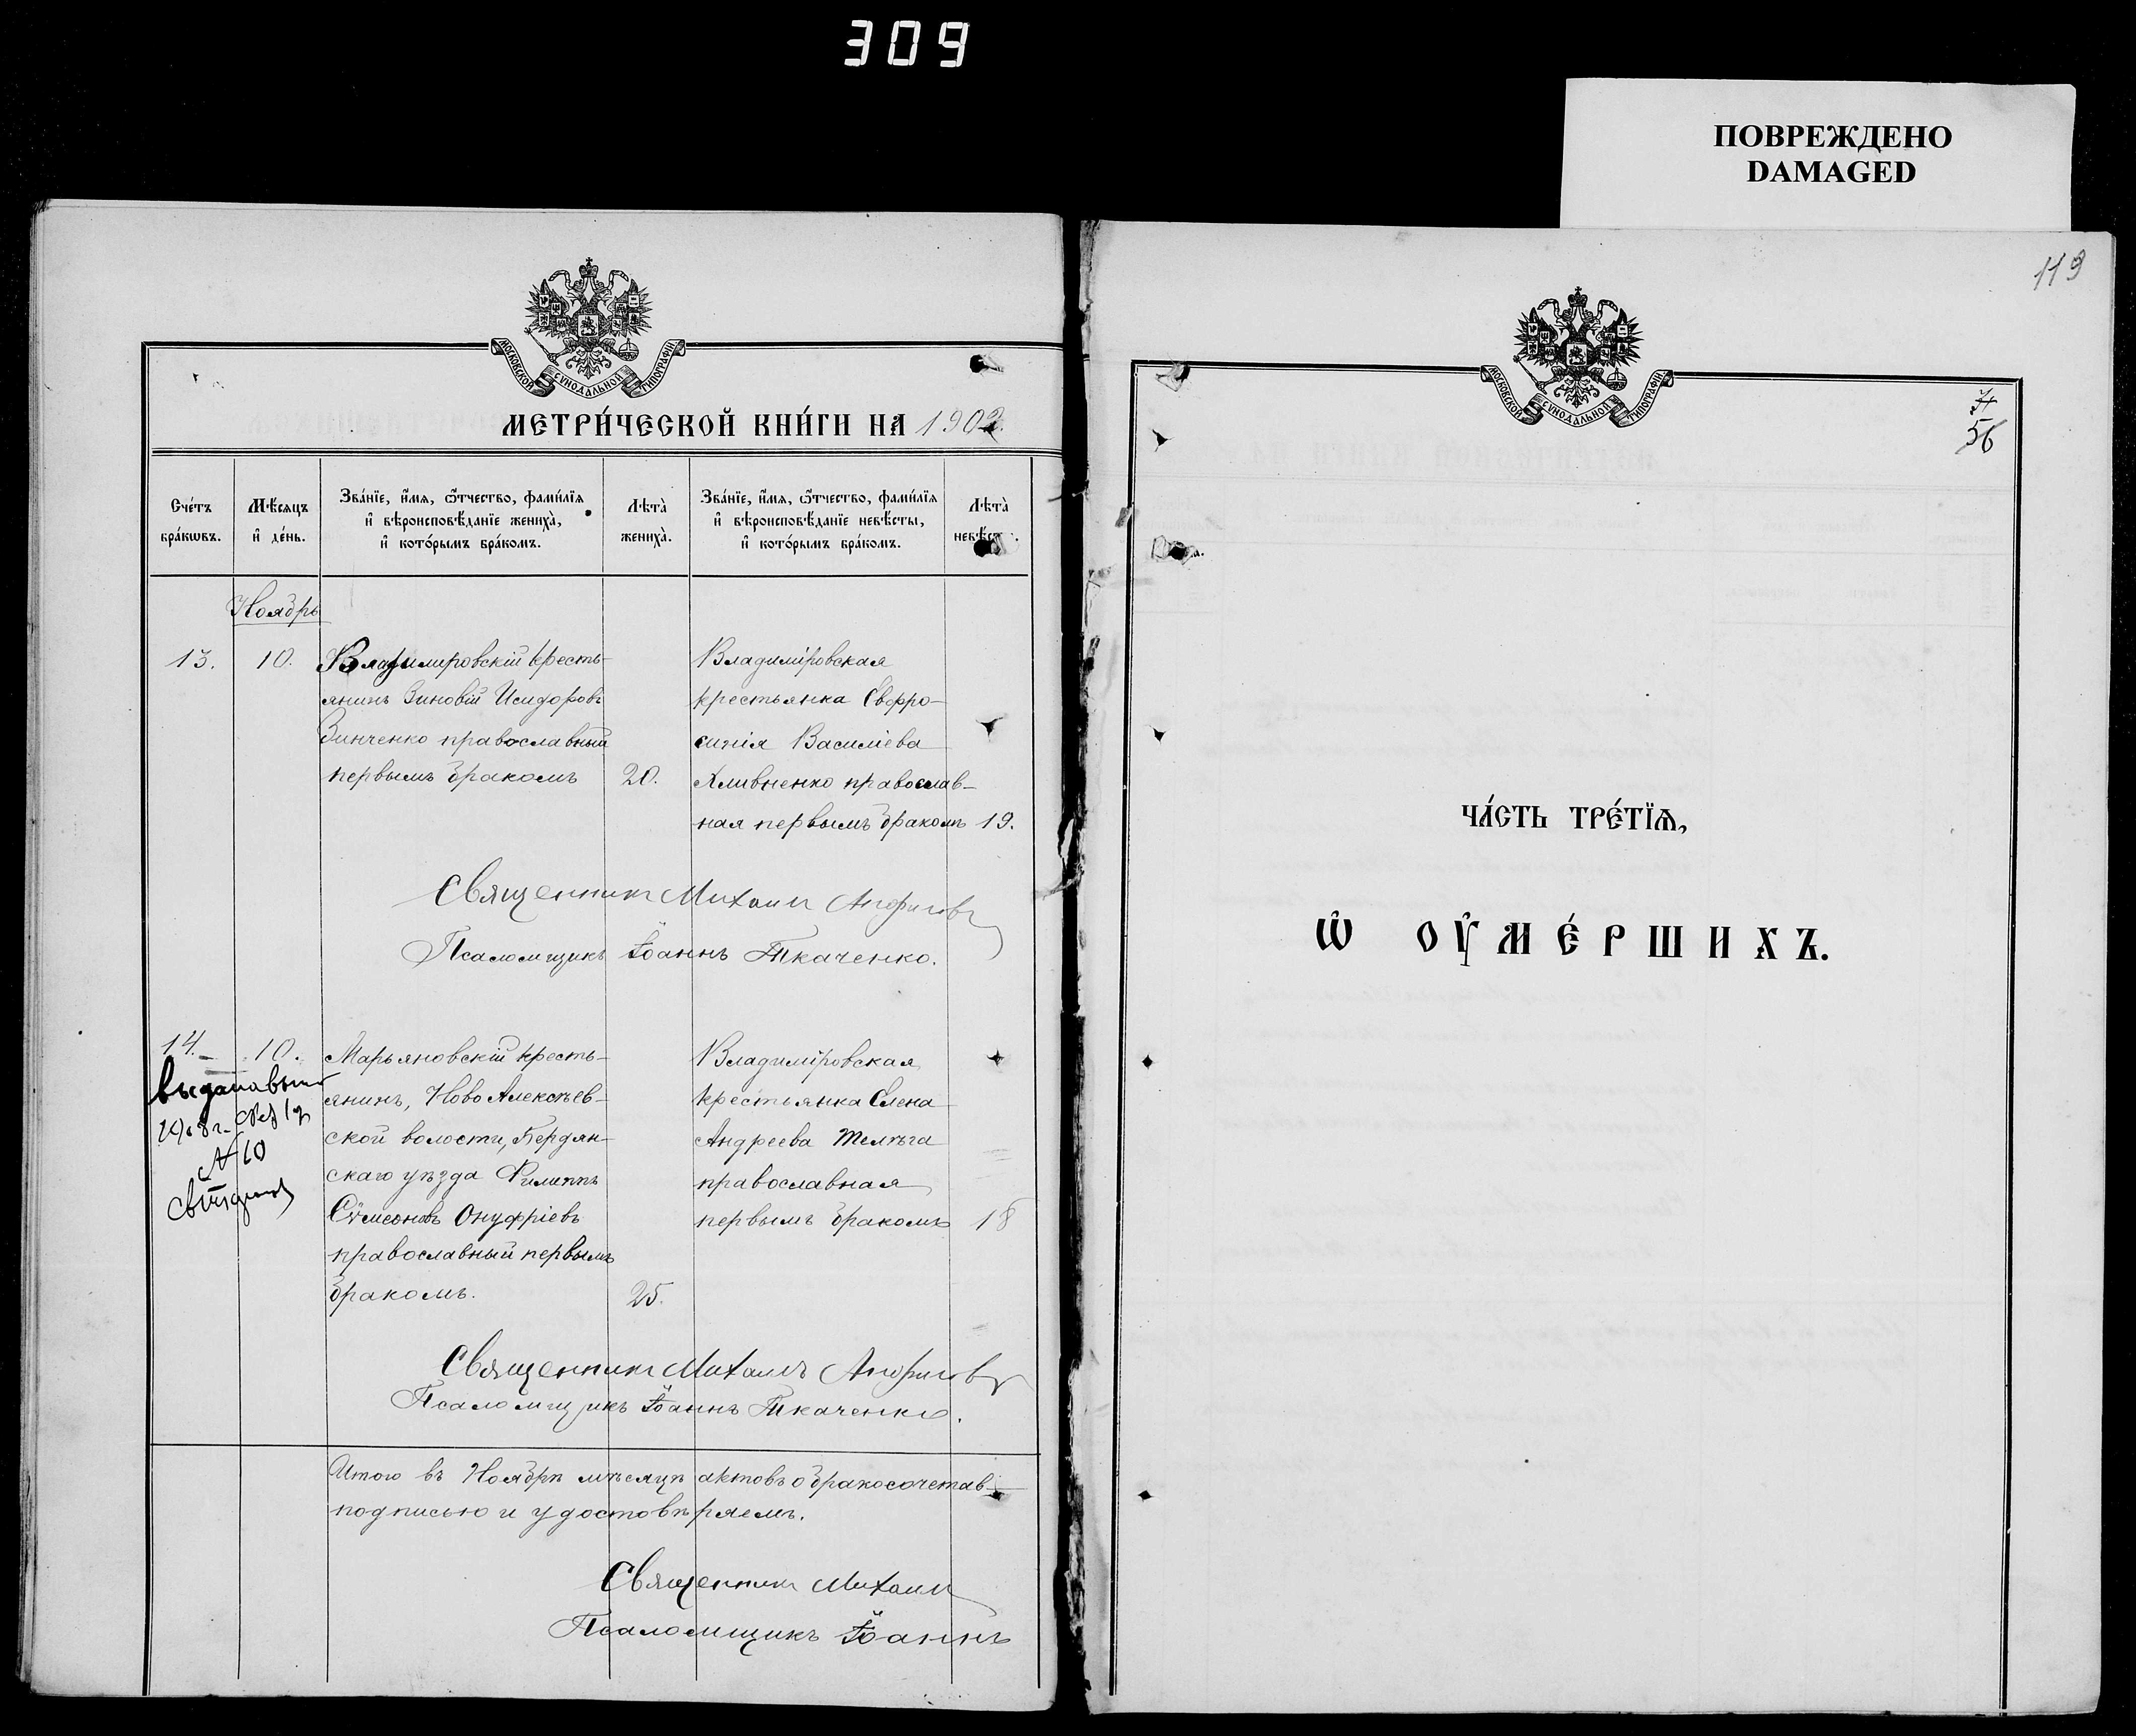 309
ПОВРЕЖДЕНО
DAMAGED
119
МОСКОВСКОЙ СѴНОДАЛЬНОЙ ТИПОГРАФІИ
МЕТРИ́ЧЕСКОЙ КНИ́ГИ НА 1902.
Сче́тъ бра́кѡвъ.
Мѣ́сяцъ и҆ де́нь.
Зва́нїе, и҆́мѧ, ѻ҆́тчество, фами́лїѧ и҆ вѣроисповѣ́данїе жениха̀, и҆ кото́рымъ бра́комъ.
Лѣта̀ жениха̀.
Зва́нїе, и҆́мѧ, ѻ҆́тчество, фами́лїѧ и҆ вѣроисповѣ́данїе невѣ́сты, и҆ кото́рымъ бра́комъ.
Лѣта̀
Ноябрь
13. 10. Владимировскій кресть-
янинъ Зиновій Исидоровъ
Зинченко православный
первымъ бракомъ 20.
Владимiровская
крестьянка Евфро-
синія Василіева
Хливненко православ-
ная первымъ бракомъ 19.
Священникъ Михаилъ
Псаломщикъ Іоаннъ Ткаченко.
14. 10. Марьяновскій кресть-
янинъ, Ново Алексѣев-
ской волости, Бердян-
скаго уѣзда Филиппъ
Сѵмеоновъ Онуфріевъ
православный первымъ
бракомъ. 25.
№ 10
Владимiровская
крестьянка Елена
Андреева Телѣга
православная
первымъ бракомъ 18
Священникъ Михаилъ
Псаломщикъ Іоаннъ Ткаченко.
Итого въ Ноябрѣ мѣсяцѣ актовъ о бракосочетав-
подписью и удостовѣряемъ.
Священникъ Михаилъ
Псаломщикъ Іоаннъ
МОСКОВСКОЙ СѴНОДАЛЬНОЙ ТИПОГРАФІИ
56
ЧА́СТЬ ТРЕ́ТЇѦ,
Ѽ ОУ҆МЕ́РШИХЪ.